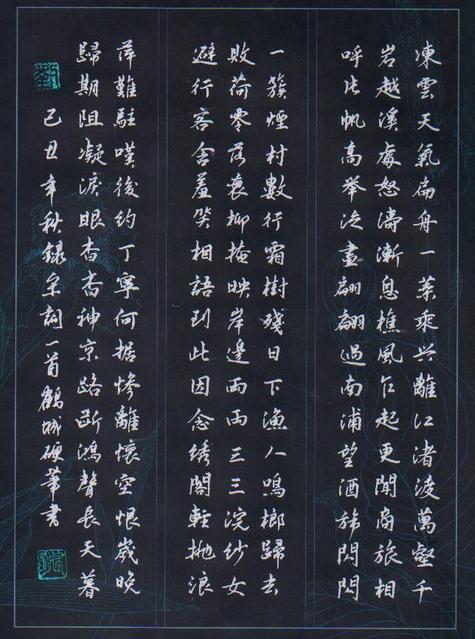 凍雲天氣扁舟一葉乘興離江渚渡萬壑千
岩越溪處怒濤漸息樵風乍起更聞商旅相
呼片帆高舉泛畫翩翩過南浦望酒旆閃閃
一簇煙村數行霜樹殘日下漁人鳴榔歸去
敗荷零落衰柳掩映岸邊兩兩三三浣紗女
避行客含羞笑相語到此因念綉閣輕拋浪
萍難駐嘆後約丁寧何據慘離懷空恨歲晚
歸期阻凝淚眼杳杳神京路斷鴻聲長天暮
己丑年秋錄宋詞一首鶴城硬筆書